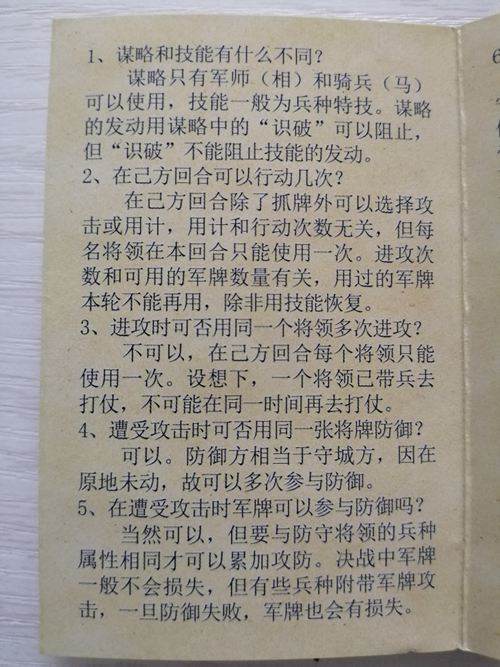 1、谋略和技能有什么不同?
谋略只有军师（相）和骑兵（马）
可以使用，技能一般为兵种特技。谋略
的发动用谋略中的“识破”可以阻止，
但“识破”不能阻止技能的发动。
2、在己方回合可以行动几次?
在己方回合除了抓牌外可以选择攻
击或用计，用计和行动次数无关，但每
名将领在本回合只能使用一次。进攻次
数和可用的军牌数量有关，用过的军牌
本轮不能再用，除非用技能恢复。
3、进攻时可否用同一个将领多次进攻?
不可以，在己方回合每个将领只能
使用一次。设想下，一个将领已带兵去
打仗，不可能在同一时间再去打仗。
4、遭受攻击时可否用同一张将牌防御?
可以。防御方相当于守城方，因在
原地未动，故可以多次参与防御。
5、在遭受攻击时军牌可以参与防御吗?
当然可以，但要与防守将领的兵种
属性相同才可以累加攻防。决战中军牌
一般不会损失，但有些兵种附带军牌攻
击，一旦防御失败，军牌也会有损失。